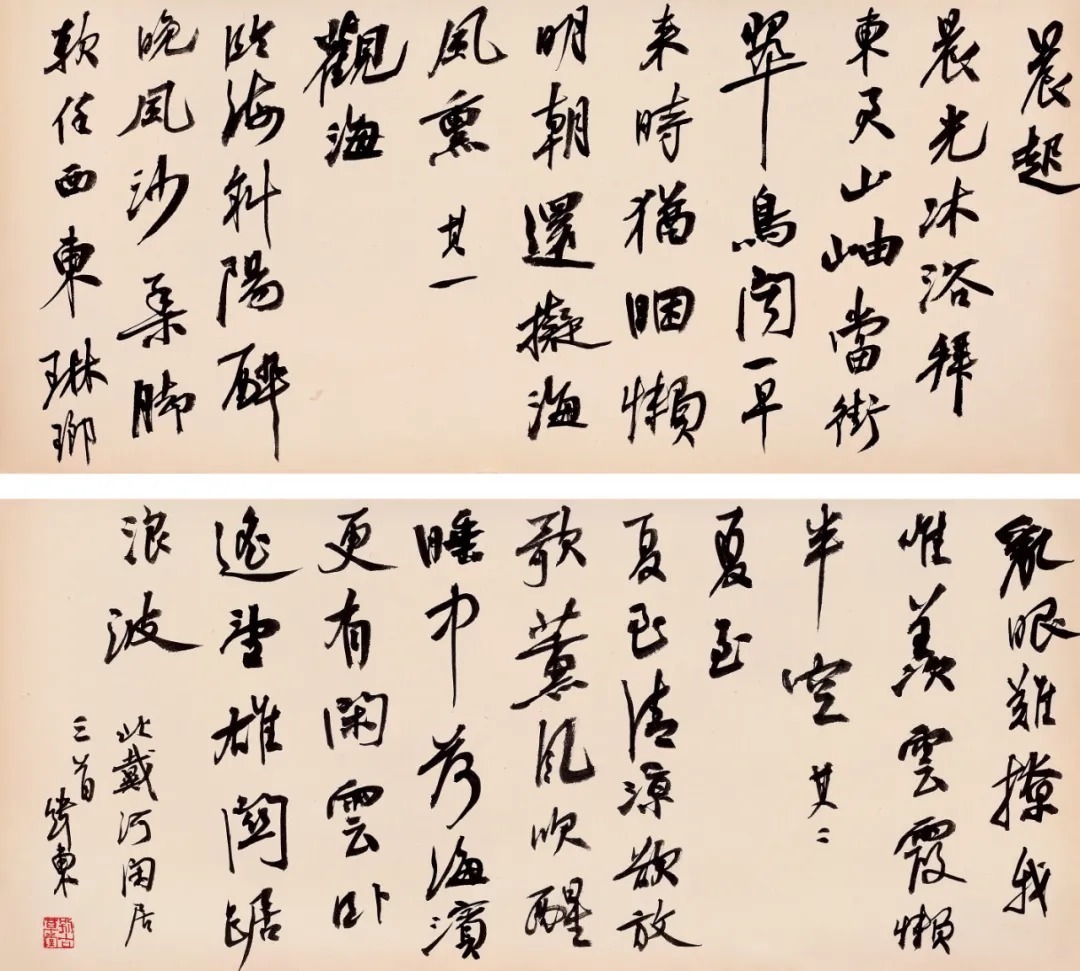 晨起
晨光沐浴拜
東君山岫當街
翠鳥闻一早
来時猶睏懶
明朝還擬海
風熏 其一
觀海
臨海斜陽醉
晚風沙柔脚
軟任西東琳瑯
亂眼難撩我
惟羡雲霞懶
半空 其二
夏至
夏至清涼欲放
歌薰風吹醒
睡中荷海濱
更有閑雲卧
遙望雄關踞
浪波
北戴河閑居
三首 緯東